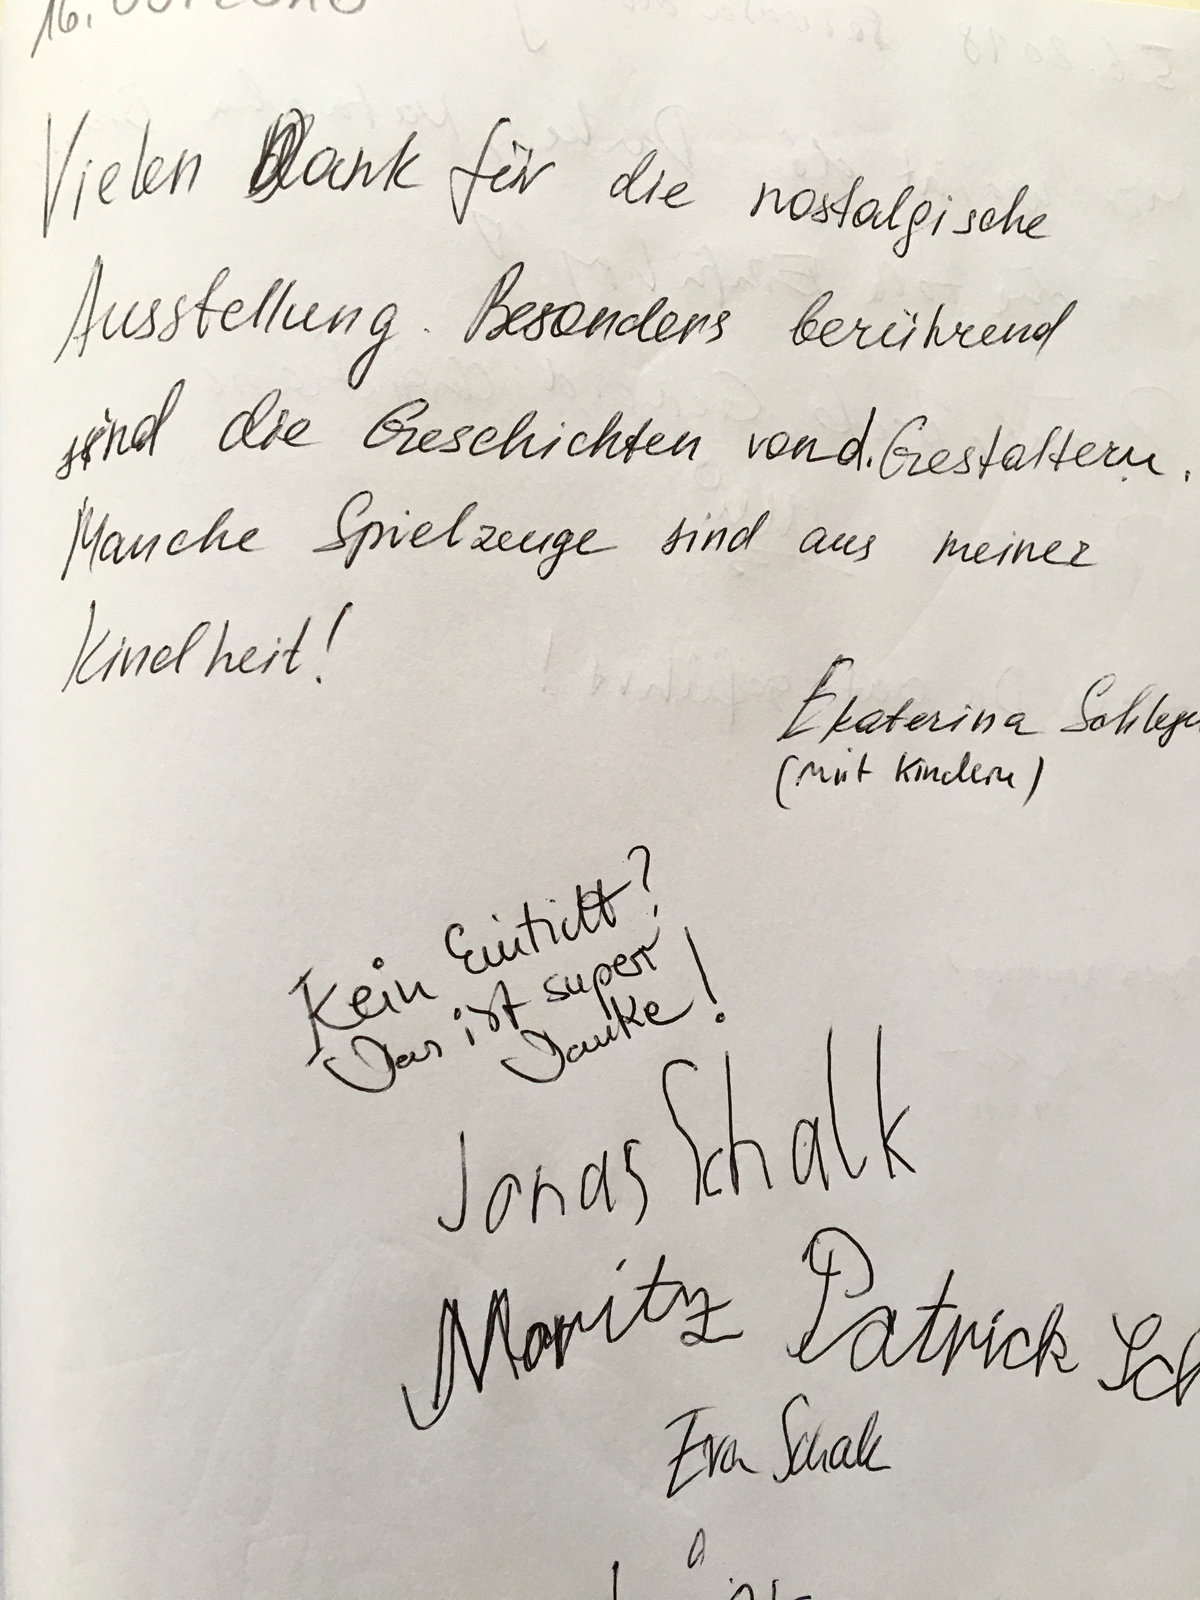 16.
Vielen Dank für die nostalgische
Ausstellung. Besonders berührend
sind die Geschichten von d. Gestaltern.
Manche Spielzeuge sind aus meiner
Kindheit!
Ekaterina
(mit Kindern)
Kein Eintritt?
Das ist super
Danke!
Jonas Schalk
Moritz Patrick Sch
Eva Schalk